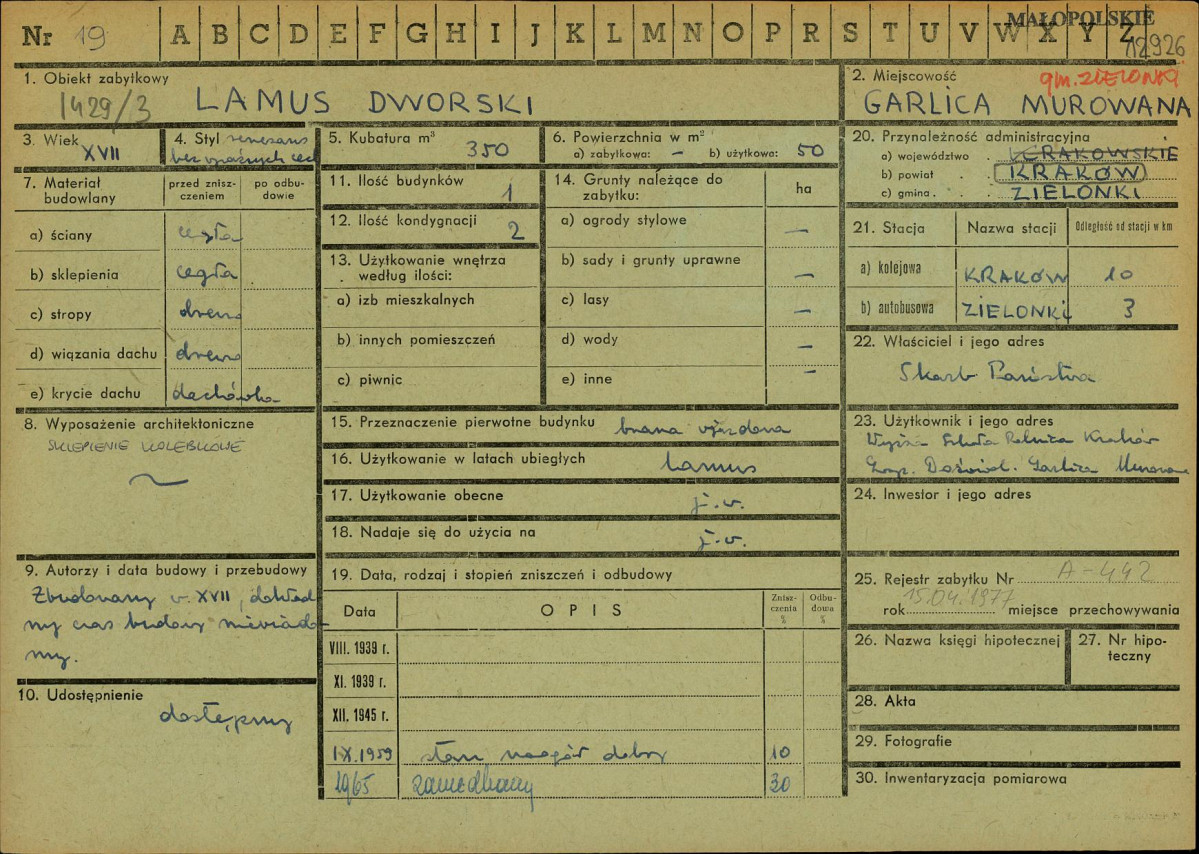 MAŁOPOLSKIE
Nr 19 A B C D E F G H I J K L M N O P R S T U V W X Y Z
12926
1. Obiekt zabytkowy
1429/3 LAMUS DWORSKI
2. Miejscowość gm. ZIELONKI
GARLICA MUROWANA
3. Wiek XVII
4. Styl renesans
bez wyraźnych cech
5. Kubatura m³ 350
6. Powierzchnia w m²
a) zabytkowa: – b) użytkowa: 50
7. Materiał budowlany
przed zniszczeniem
po odbudowie
a) ściany cegła
b) sklepienia cegła
c) stropy drewno
d) wiązania dachu drewno
e) krycie dachu dachówka
8. Wyposażenie architektoniczne
SKLEPIENIE KOLEBKOWE
9. Autorzy i data budowy i przebudowy
Zbudowany w XVII, dokład
ny czas budowy niewiado-
my.
10. Udostępnienie
dostępny
11. Ilość budynków 1
12. Ilość kondygnacji 2
13. Użytkowanie wnętrza
według ilości:
a) izb mieszkalnych
b) innych pomieszczeń
c) piwnic
14. Grunty należące do
zabytku:
ha
a) ogrody stylowe –
b) sady i grunty uprawne –
c) lasy –
d) wody –
e) inne –
15. Przeznaczenie pierwotne budynku brama wjazdowa
16. Użytkowanie w latach ubiegłych lamus
17. Użytkowanie obecne j.w.
18. Nadaje się do użycia na j.w.
19. Data, rodzaj i stopień zniszczeń i odbudowy
Data OPIS Zniszczenia % Odbudowa %
VIII. 1939 r.
XI. 1939 r.
XII. 1945 r.
I-X.1959 stan naogół dobry 10
1965 zaniedbany 30
20. Przynależność administracyjna
a) województwo KRAKOWSKIE
b) powiat KRAKÓW
c) gmina ZIELONKI
21. Stacja Nazwa stacji Odległość od stacji w km
a) kolejowa KRAKÓW 10
b) autobusowa ZIELONKI 3
22. Właściciel i jego adres
Skarb Państwa
23. Użytkownik i jego adres
Wyższa Szkoła Rolnicza Kraków
Gosp. Doświad. Garlica Murowana
24. Inwestor i jego adres
25. Rejestr zabytku Nr A-442
rok 15.04.1977 miejsce przechowywania
26. Nazwa księgi hipotecznej
27. Nr hipoteczny
28. Akta
29. Fotografie
30. Inwentaryzacja pomiarowa